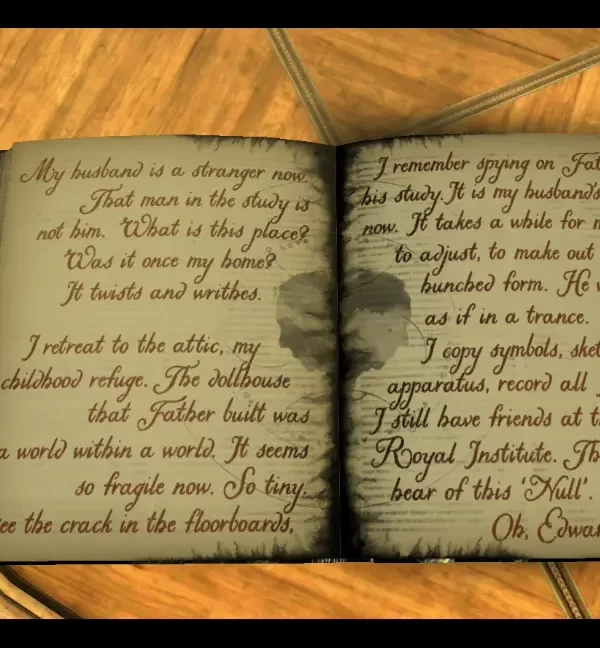 My husband is a stranger now.
That man in the study is
not him. What is this place?
Was it once my home?
It twists and writhes.
I retreat to the attic, my
childhood refuge. The dollhouse
that Father built was
a world within a world. It seems
so fragile now. So tiny.
the crack in the floorboards,
I remember spying on
his study. It is my husband's
now. It takes a while for
to adjust, to make out
hunched form. He
as if in a trance.
I copy symbols,
apparatus, record all
I still have friends at
Royal Institute.
hear of this 'Null'.
Oh,